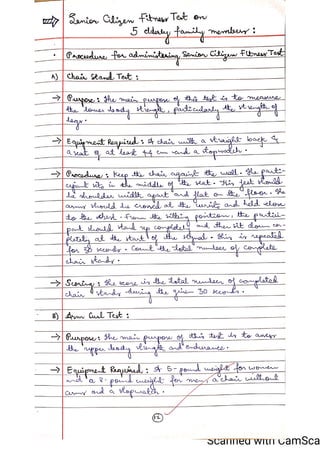 Senior Citizen Fitness Test on
5 elderly family members :
Procedure for administering Senior Citizen Fitness Test
A) Chair Stand Test :
→ Purpose : The main purpose of this test is to measure
the lower body strength, particularly the strength of
legs.
→ Equipment Required : A chair with a straight back &
a seat of at least 44 cm and a stopwatch.
→ Procedure : Keep the chair against the wall. The parti-
cipant sits in the middle of the seat. His feet should
be shoulder width apart and flat on the floor. The
arms should be crossed at the wrists and held close
to the chest. From the sitting position, the partici-
pant should stand up completely and then sit down com-
pletely at the start of the signal. This is repeated
for 30 seconds. Count the total number of complete
chair stands.
→ Scoring : The score is the total number of completed
chair stands during the given 30 seconds.
B) Arm Curl Test :
→ Purpose : The main purpose of this test is to assess
the upper body strength and endurance.
→ Equipment Required : A 5-pound weight for women
and a 8-pound weight for men, a chair without
arms and a stopwatch.
12
Scanned with CamSca